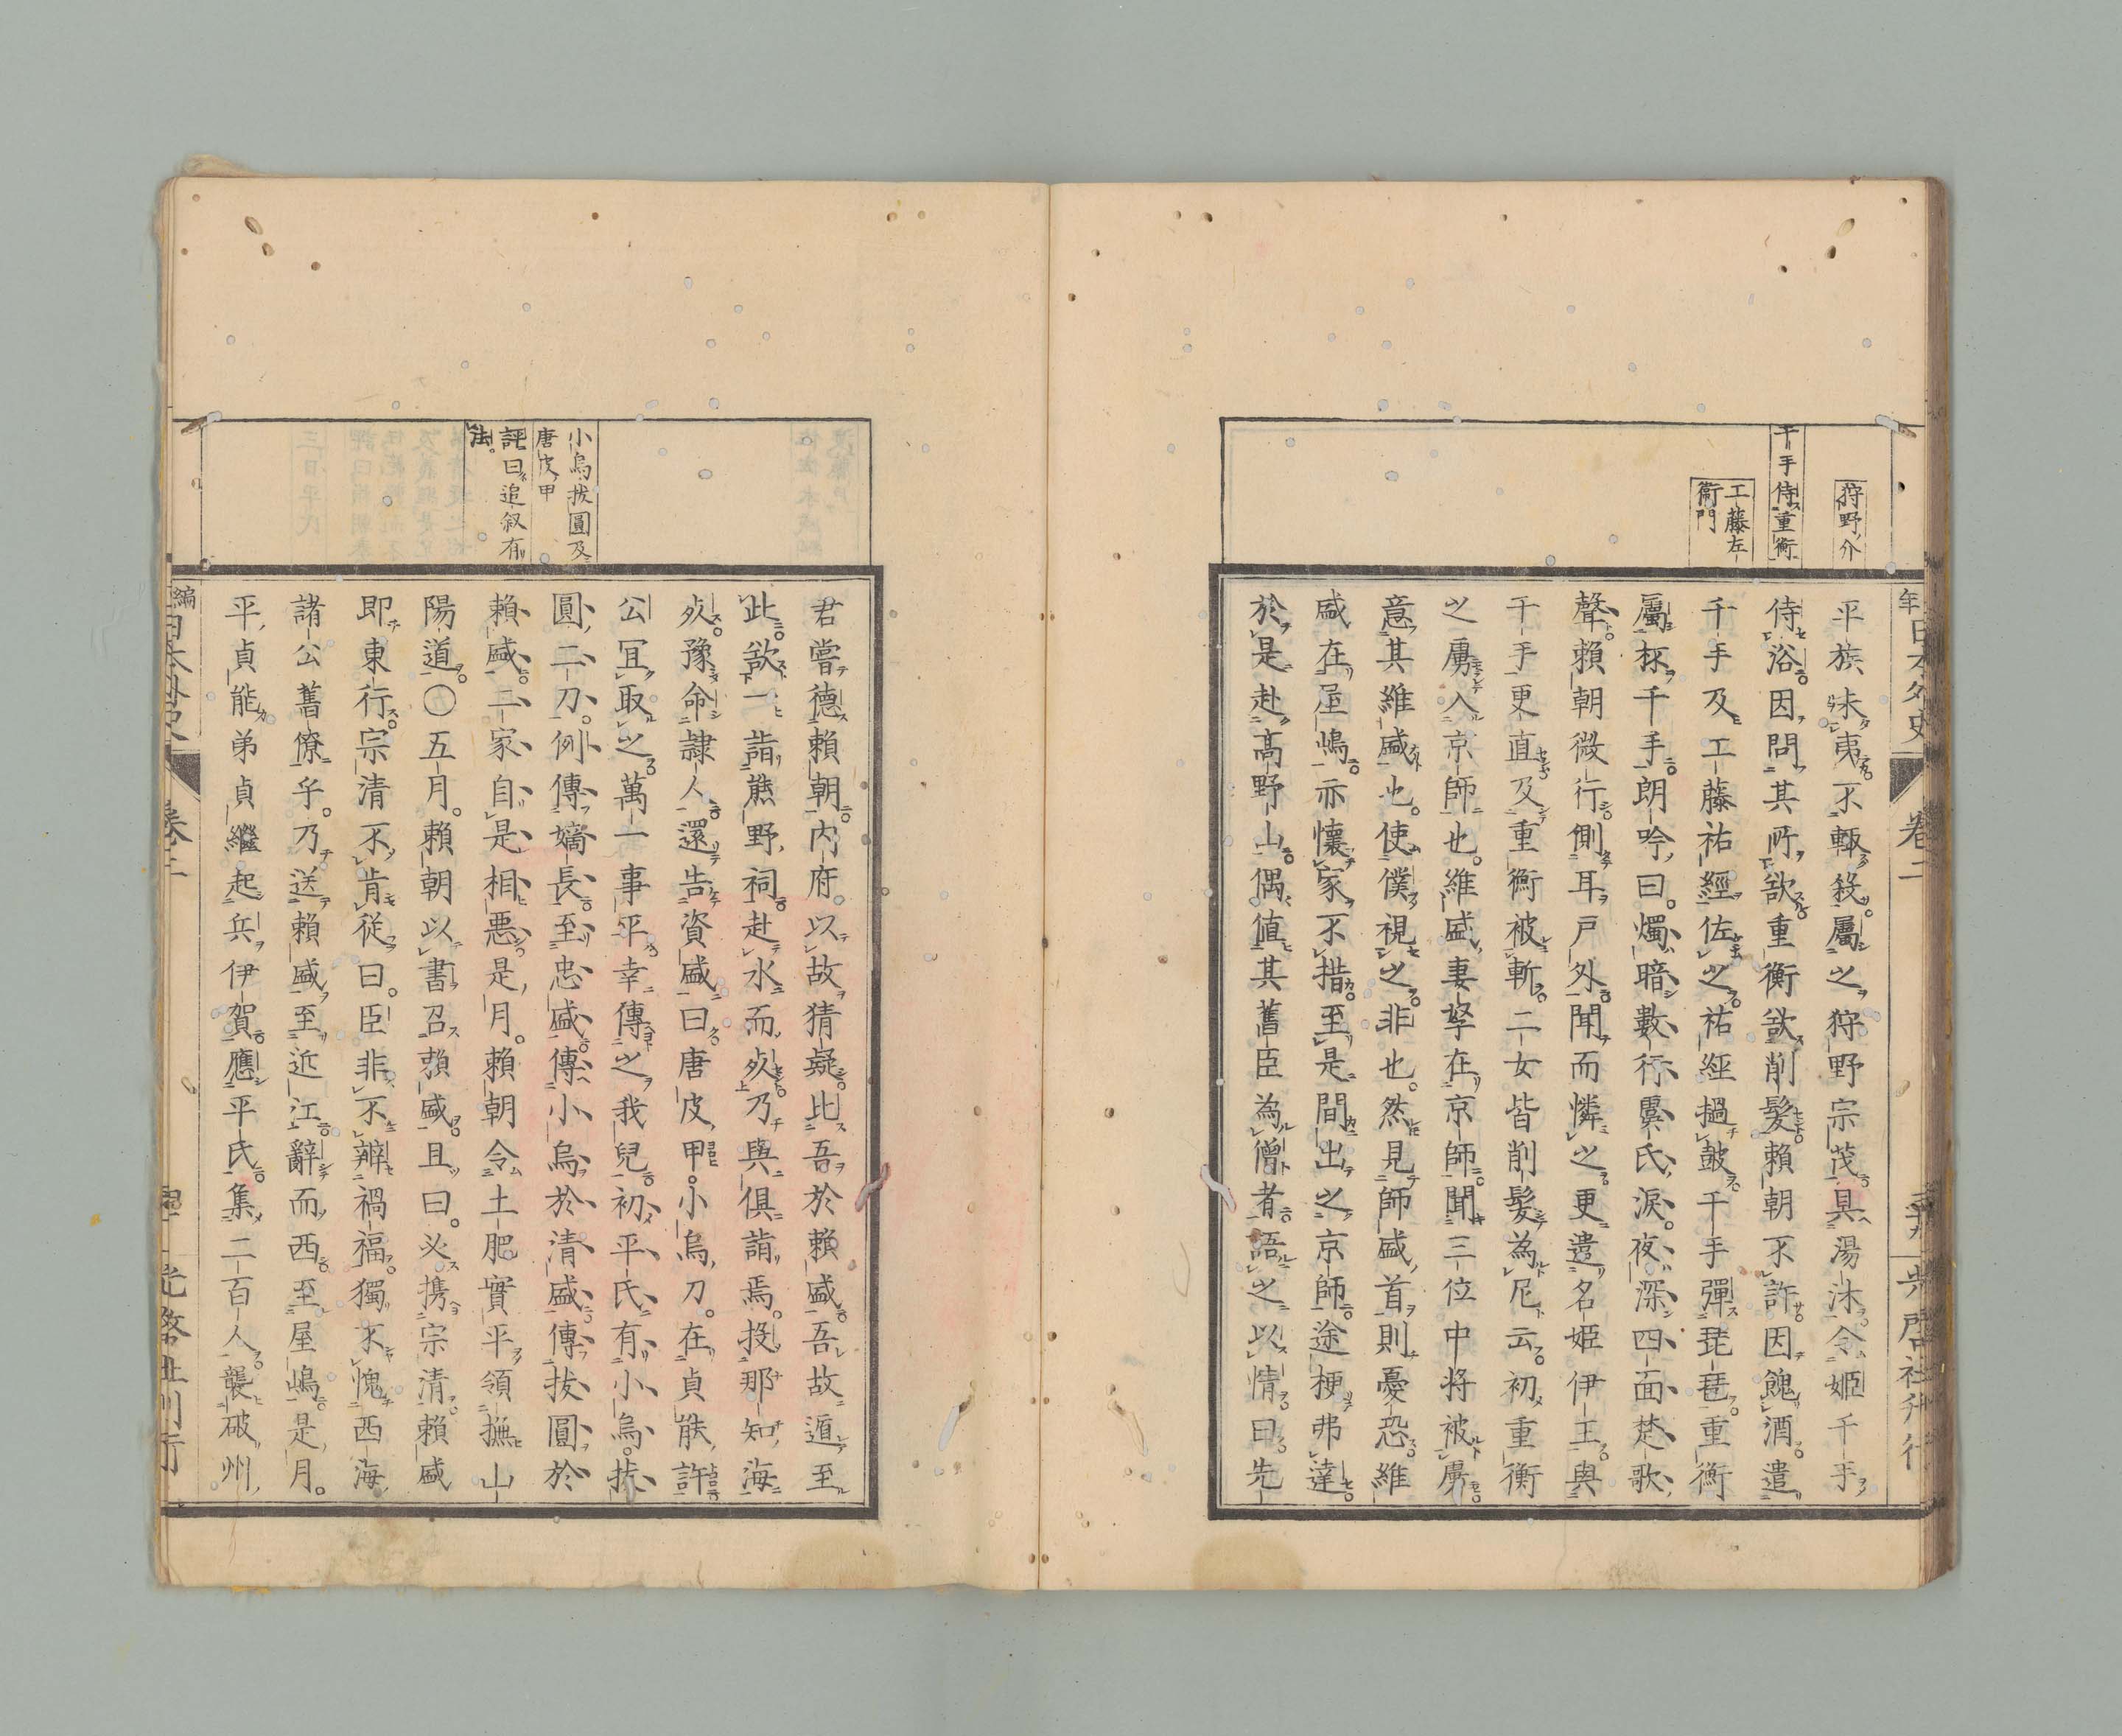 狩野介
千手侍重衡
工藤左
衛門
平族未夷不輙殺屬之狩野宗茂具湯沐令姬千手
侍浴因問其所欲重衡欲削髮賴朝不許因餽酒遣
千手及工藤祐經佐之祐經撾鼓千手彈琵琶重衡
屬杯千手朗吟曰燭暗數行虞氏淚夜深四面楚歌
聲賴朝微行側耳戸外聞而憐之更遣名姬伊王與
千手更直及重衡被斬二女皆削髮為尼云初重衡
之虜入京師也維盛妻孥在京師聞三位中将被虜
意其維盛也使僕視之非也然見師盛首則憂恐維
盛在屋嶋亦懷家不措至是間出之京師途梗弗達
於是赴高野山偶值其舊臣為僧者語之以情曰先
小烏拔圓及
唐皮甲
評曰追叙有
法
君嘗德賴朝內府以故猜疑比吾於賴盛吾故遁至
此欲一詣熊野祠赴水而死乃與俱詣焉投那知海
死豫命隷人還告資盛曰唐皮甲小烏刀在貞能許
公冝取之萬一事平幸傳之我兒初平氏有小烏拔
圓二刀例傳嫡長至忠盛傳小烏於清盛傳拔圓於
賴盛二家自是相惡是月賴朝令土肥實平領撫山
陽道〇五月賴朝以書召賴盛且曰必携宗清賴盛
即東行宗清不肯從曰臣非不辨禍福獨不愧西海
諸公舊僚乎乃送賴盛至近江辭而西至屋嶋是月
平貞能弟貞繼起兵伊賀應平氏集二百人襲破州